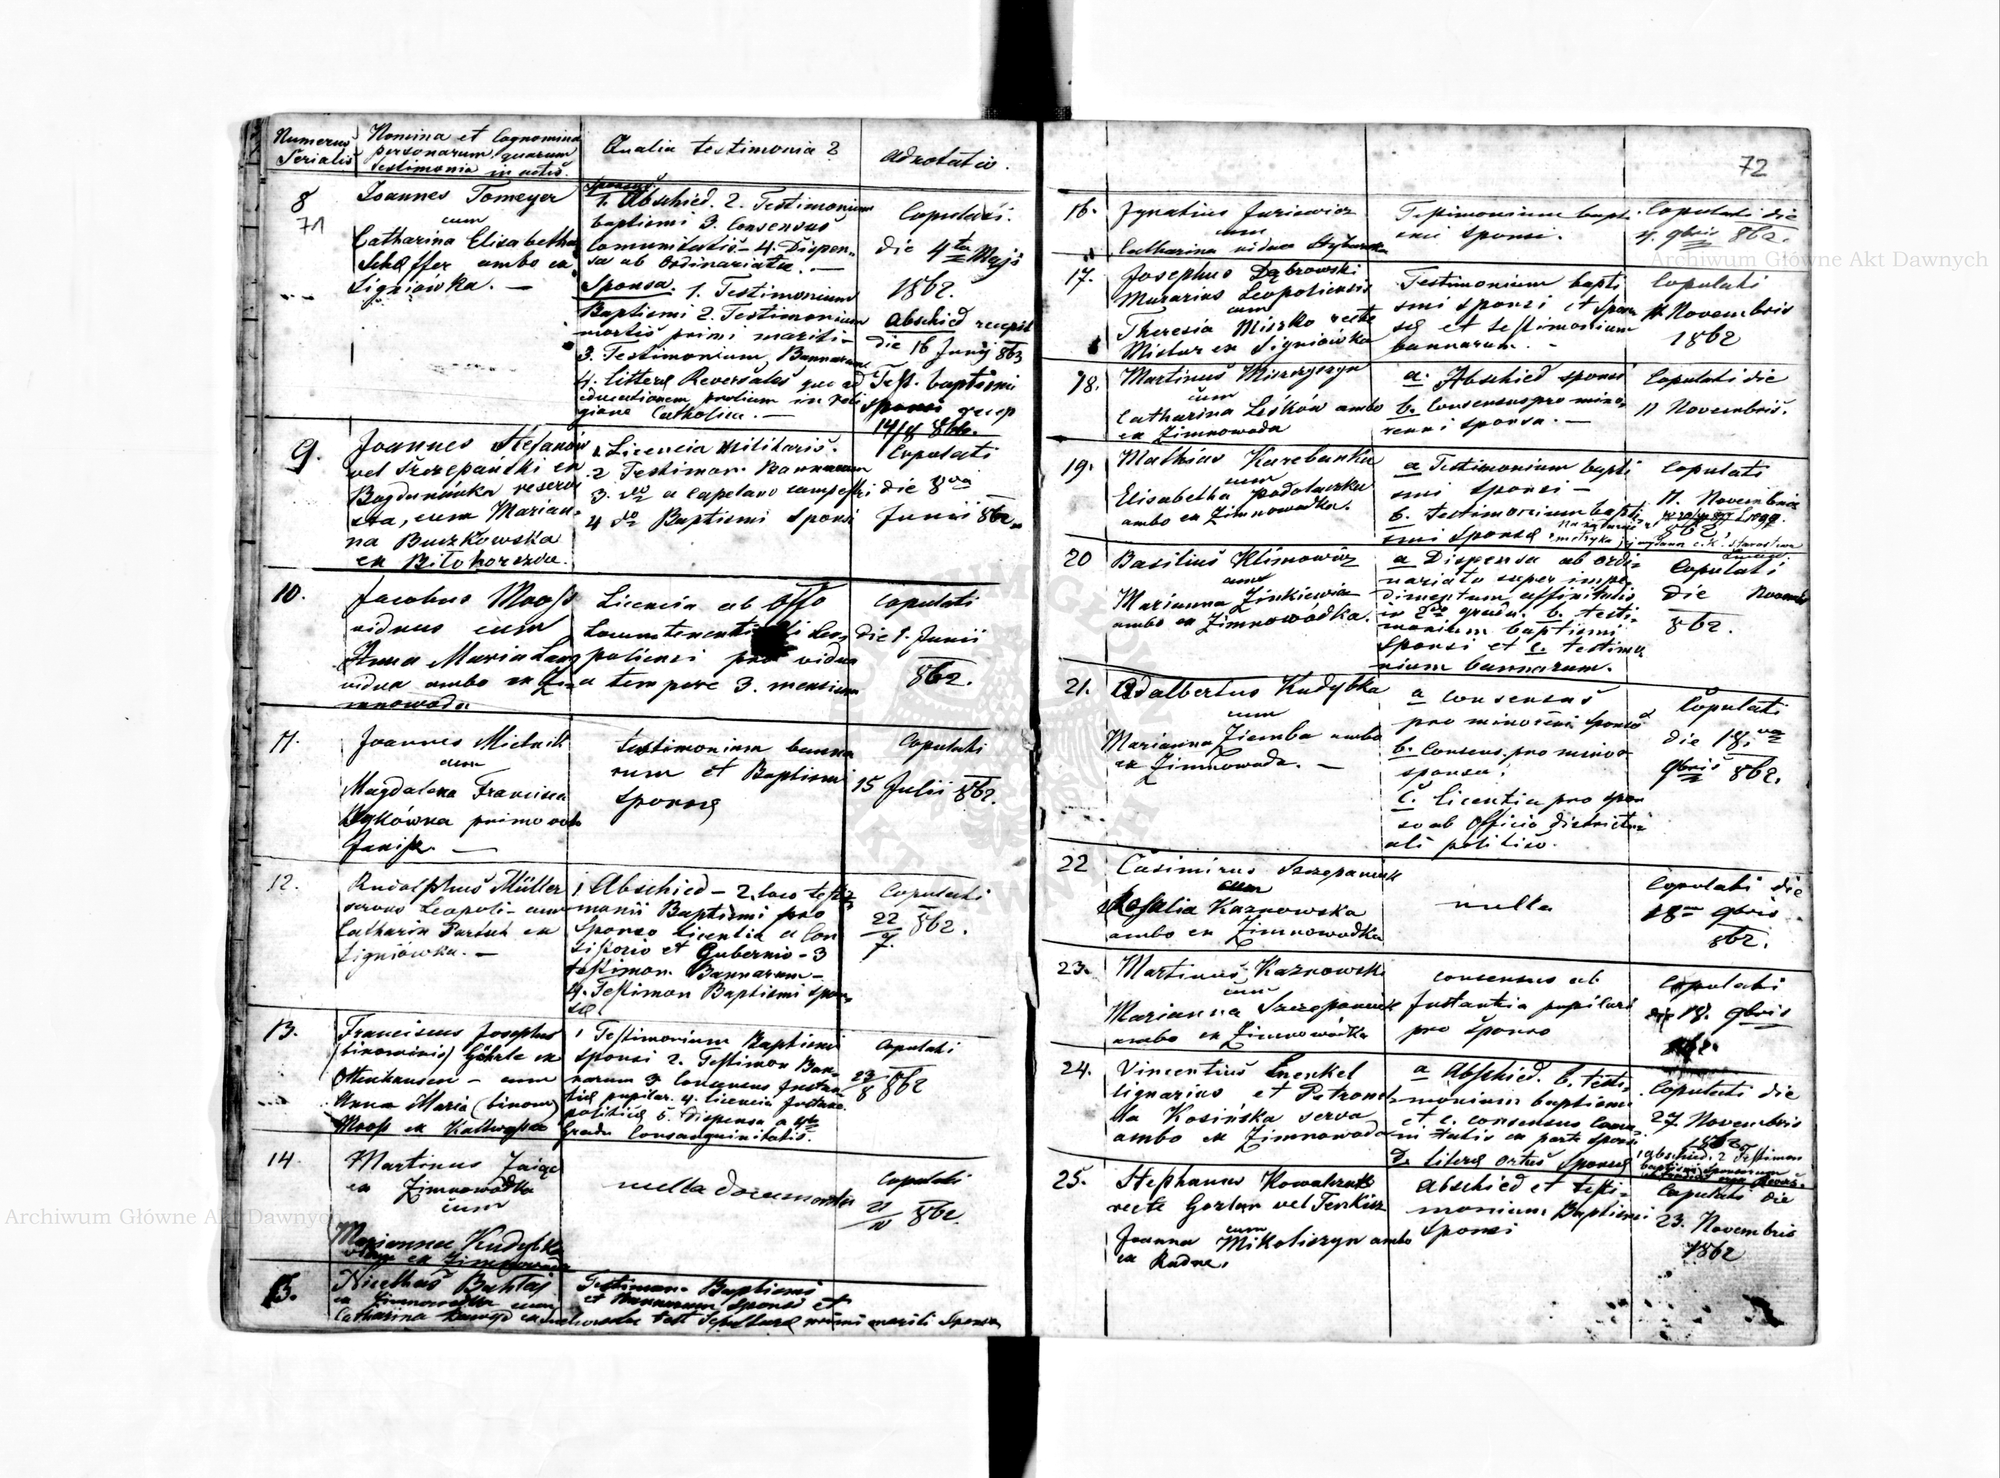 Numerus Serialis
Nomina et Cognomina
personarum, quarum
testimonia in actis.
Qualia testimonia?
Adnotatio.
8
71
Joannes Tomeyer
cum
Catharina Elisabetha
Scheffer ambo ex
Signiówka. —
Sponsi.
1. Abschied. 2. Testimonium
baptismi 3. Consensus
Comunitatis – 4. Dispen-
sa ab Ordinariatu. —
Sponsa. 1. Testimonium
Baptismi 2. Testimonium
mortis primi mariti –
3. Testimonium Bannarum
4. Litterę Reversales quoad
educationem prolium in reli
gione Catholica. —
Copulati.
die 4ta Maji
1862.
Abschied recepit
die 16 Junij 863
Test. baptismi
sponsi recep
9.
Joannes Stefanów
vel Szczepański ex
Bogdanówka reservi
sta, cum Marian-
na Buczkowska
ex Bilohorszcza.
1. Licencia Militaris.
2 Testimon. Bannarum
3. do a Capelano campestri
4 do Baptismi Sponsi
Copulati
die 8va
Junii 862.
10.
Jacobus Moos
viduus cum
Anna Maria Lang
vidua ambo ex Zi-
mnowoda
Licencia ab Offo
Locumtenenti Leo
poliensi pro vidua
a tempore 3. mensium
Copulati
die 1. Junii
862.
11.
Joannes Mielnik
cum
Magdalena Francisca
primo voto
testimonium banna
rum et Baptismi
Sponsę
Copulati
15 Julii 862.
12.
Rudolphus Müller
servus Leopoli – cum
Catharin ex
Signiówka. —
1. Abschied – 2. loco testi
monii Baptismi pro
Sponso Licentia a Con
sistorio et Gubernio – 3
testimon. Bannarum –
4. Testimon Baptismi spon
sę
Copulati
22/7 862.
13.
Franciscus Josephus
(binominis) ex
Ottenhausen – cum
Anna Maria (binom)
Moos ex Kaltwasser
1 Testimonium Baptismi
sponsi 2. Testimon Ban-
narum 3 Consensus Instan
tię pupilar. 4. Licencia Instan
politicę 5. Dispensa a 4to
Gradu Consanguinitatis.
Copulati
23/8 862
14.
Martinus
ex Zimnowodka
cum
Marianna Kudybka
vidua ex Zimnowoda
nulla documenta
Copulati
21/10 862.
15.
ex Zimnowodka cum
Catharina
Testimon. Baptismi
et Bannarum Sponsi et
test Sepulturę primi mariti Sponsa
72
16.
Ignatius Juriewicz
cum
Catharina vidua
Testimonium bapti
smi sponsi.
Copulati die
4. 9bris 862.
17.
Josephus Dąbrowski
Murarius Leopoliensis
cum
Theresia Miszko recte
ex Signiówka
Testimonium bapti
smi sponsi et spon
sę et testimonium
bannarum. –
Copulati
11 Novembris
1862
18.
Martinus
cum
Catharina Leśków ambo
ex Zimnowoda
a. Abschied sponsi
b. Consensus pro mino-
renni sponsa. —
Copulati die
11 Novembris.
19.
Mathias
cum
Elisabetha Podolaczka
ambo ex Zimnowodka.
a Testimonium bapti
smi sponsi –
b. Testimonium bapti
smi Sponsę
Copulati
17. Novembris
862
20
Basilius Klimowicz
cum
Marianna Zinkiewicz
ambo ex Zimnowódka.
a Dispensa ab ordi-
nariato super impe-
dimentum affinitatis
in 2do gradu, b. testi-
monium baptismi
sponsi et c. testimo-
nium bannarum.
Copulati
die Novemb
862.
21.
Adalbertus Kudybka
cum
Marianna Ziemba ambo
ex Zimnowoda. —
a Consensus
pro minorenni sponso
b. Consens. pro minor
sponsa.
c. Licentia pro spon
so ab Officio districtu-
ali politico.
Copulati
die 18.va
9bris 862.
22
Casimirus Szczepaniuk
cum
Rosalia Kaznowska
ambo ex Zimnowodka
nulla
Copulati die
18va 9bris
862.
23.
Martinus Kaznowski
cum
Marianna Szczepaniuk
ambo ex Zimnowodka
consensus ab
Instantia pupilari
pro sponso
Copulati
18. 9bris
862.
24.
Vincentius
lignarius et Petronel
la Kosińska serva
ambo ex Zimnowoda
a Abschied. b. testi-
monium baptismi
et c. consensus Comu
nitatis ex parte sponsi
d. Literę ortus Sponsę
Copulati die
27 Novembris
1862
1 abschied. 2 Testimon
baptismi sponsorum
25.
Stephanus Kowalczuk
recte
cum
Joanna Mikoliczyn ambo
ex Rudno.
Abschied et testi-
monium Baptismi
Sponsi
Copulati die
23. Novembris
1862
Archiwum Główne Akt Dawnych
Archiwum Główne Akt Dawnych